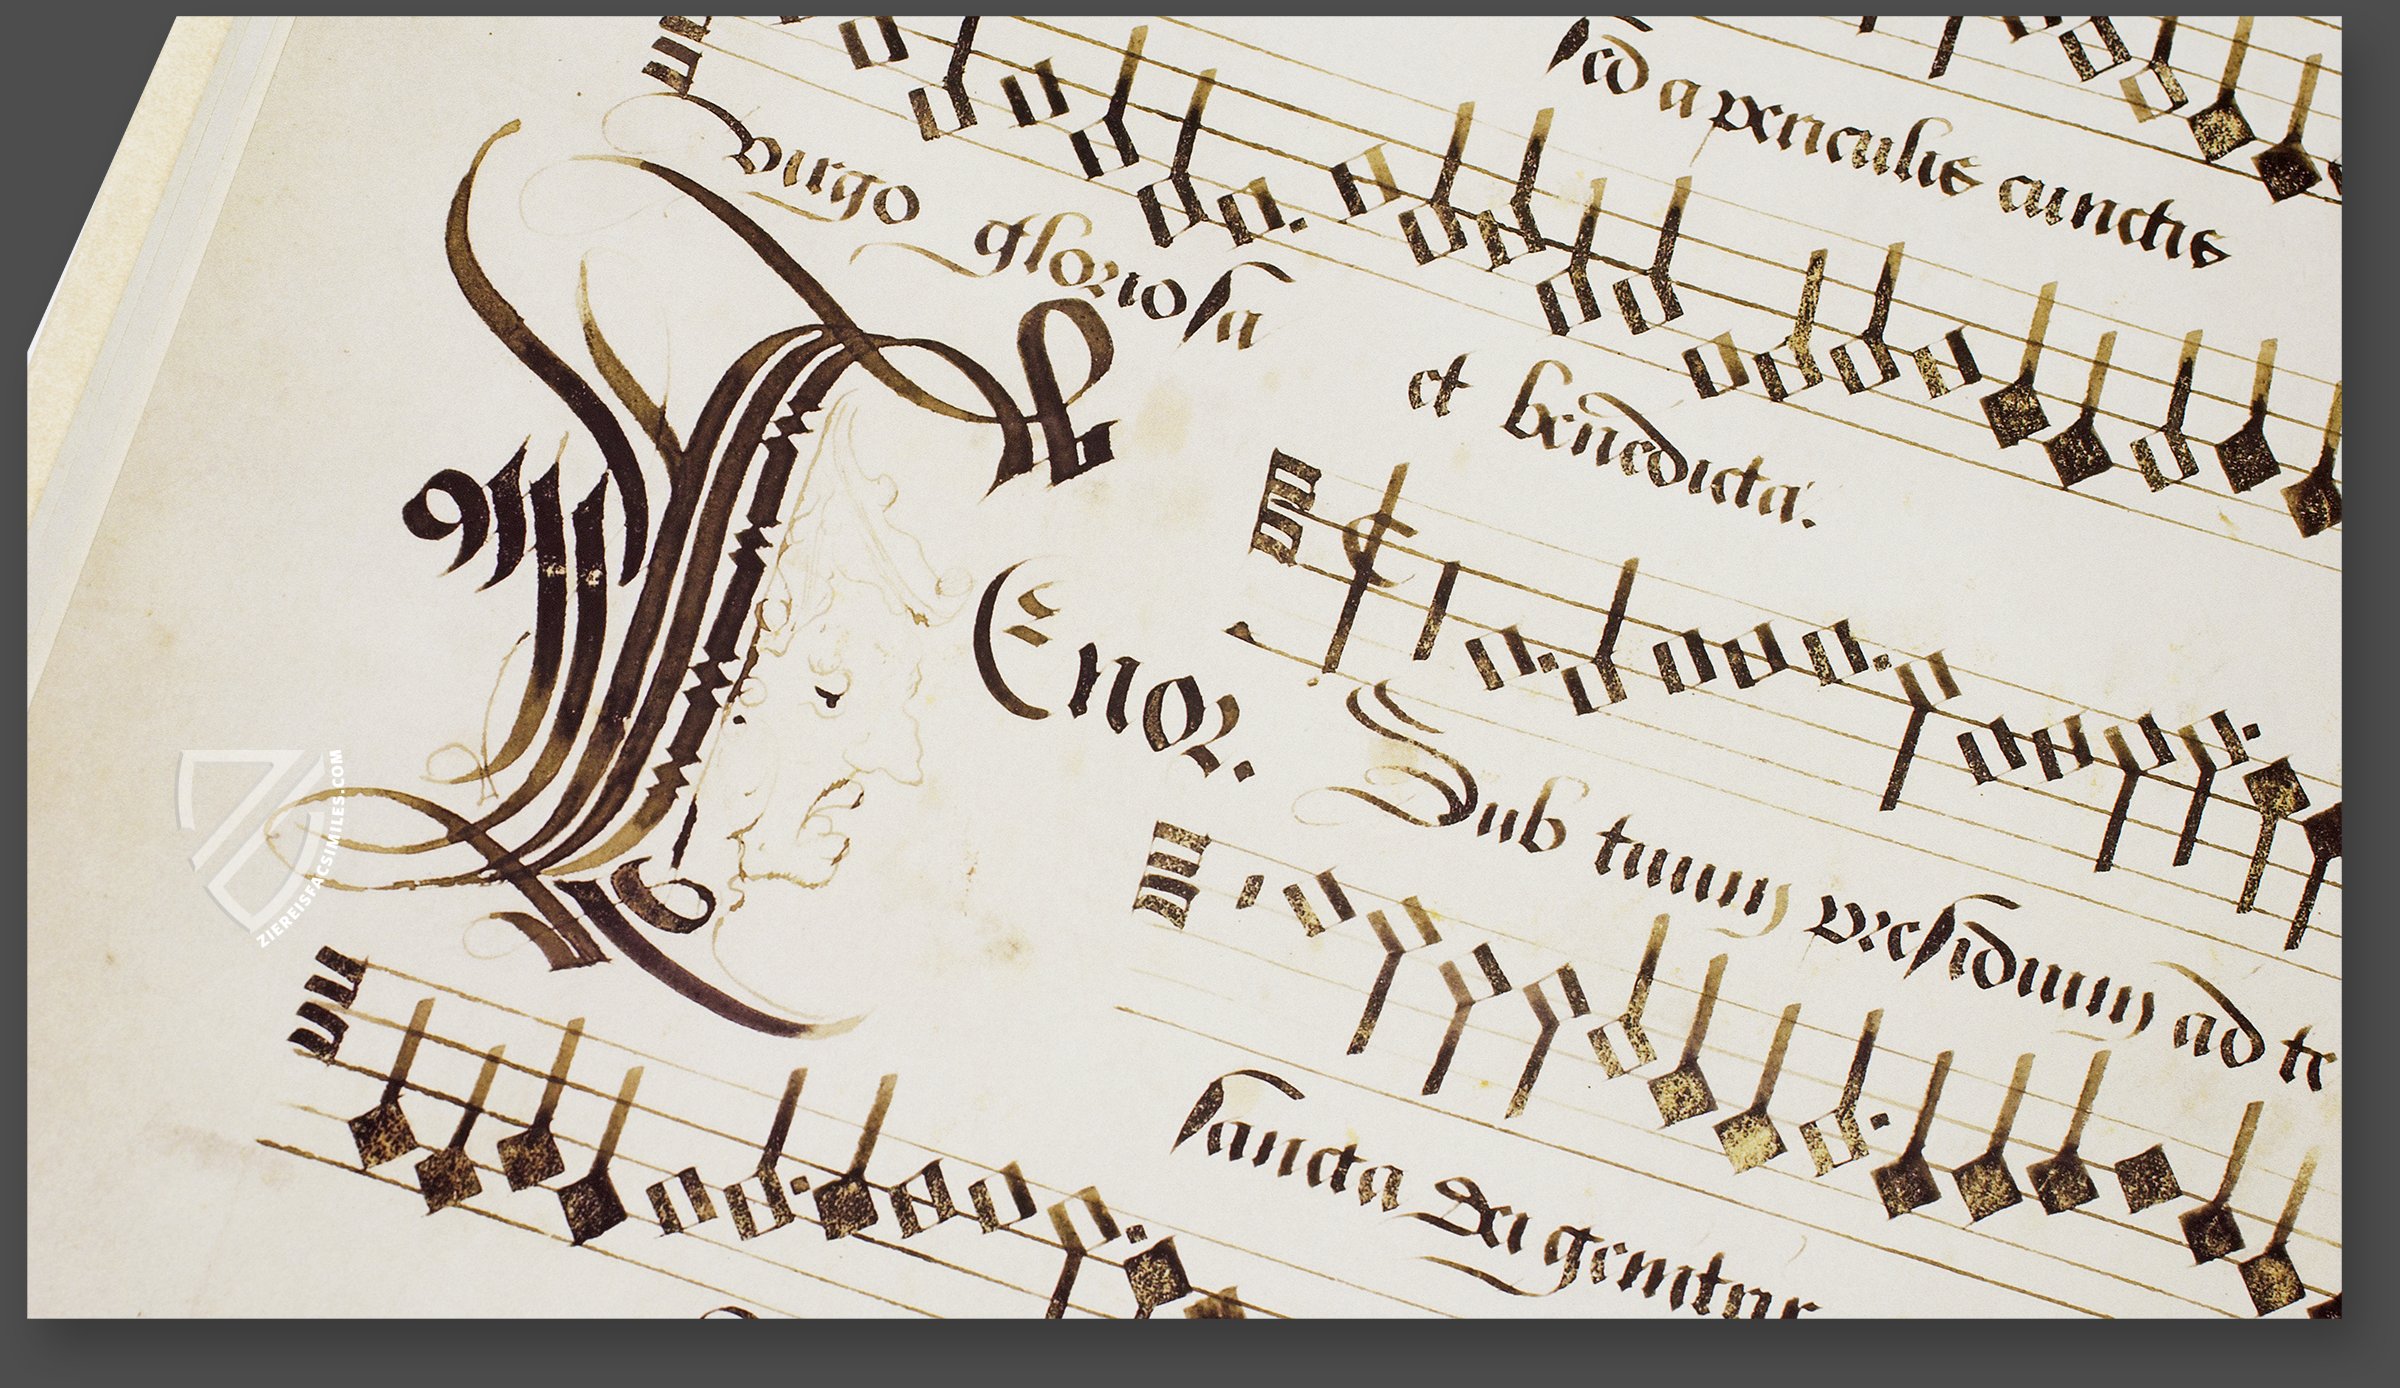 sed a periculis cunctis
virgo gloriosa
et benedicta:
Tenor.
Sub tuum presidium ad te
sancta dei genitrix
ZIEREISFACSIMILES.COM